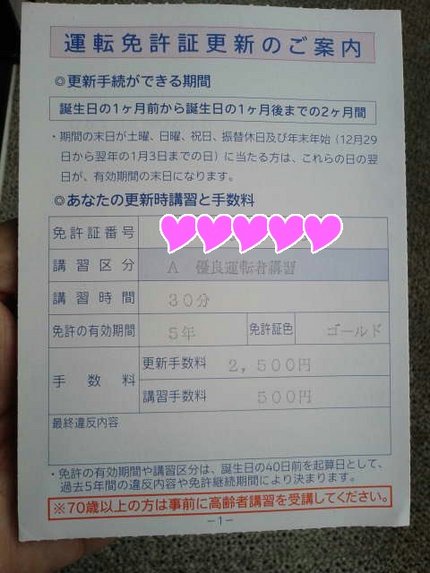 運転免許証更新のご案内
◎更新手続ができる期間
誕生日の1ヶ月前から誕生日の1ヶ月後までの2ヶ月間
・期間の末日が土曜、日曜、祝日、振替休日及び年末年始（12月29
日から翌年の1月3日までの日）に当たる方は、これらの日の翌
日が、有効期間の末日になります。
◎あなたの更新時講習と手数料
免許証番号
講習区分 A 優良運転者講習
講習時間 30分
免許の有効期間 5年 免許証色 ゴールド
手数料 更新手数料 2,500円
講習手数料 500円
最終違反内容
・免許の有効期間や講習区分は、誕生日の40日前を起算日として、
過去5年間の違反内容や免許継続期間により決まります。
※70歳以上の方は事前に高齢者講習を受講してください。
－1－